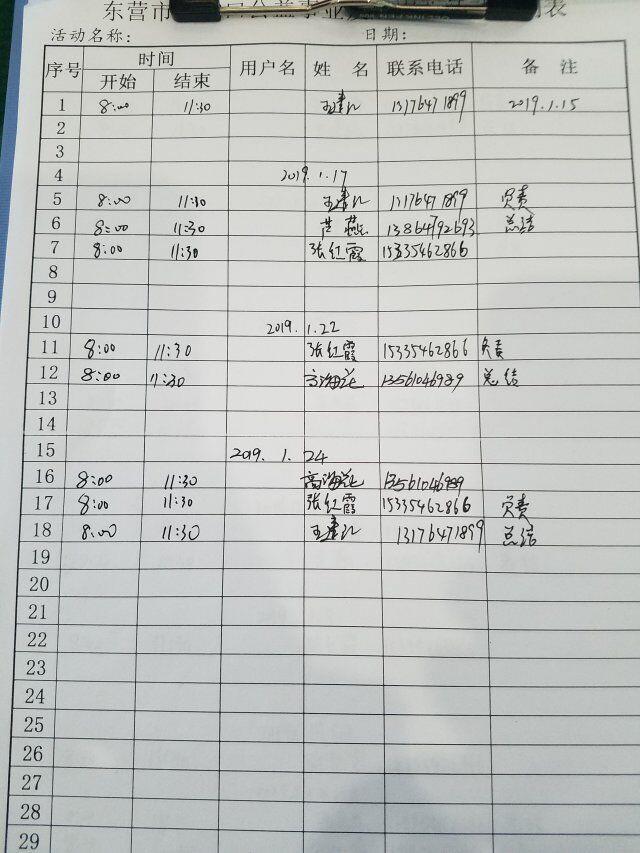 东营市 公益事业 表
活动名称: 日期:
序号 时间 用户名 姓 名 联系电话 备 注
开始 结束
1 8:00 11:30 13176471899 2019.1.15
2
3
4 2019.1.17
5 8:00 11:30 13176471899 负责
6 8:00 11:30 燕 13864792693 总结
7 8:00 11:30 张红霞 15335462866
8
9
10 2019.1.22
11 8:00 11:30 张红霞 15335462866 负责
12 8:00 11:30 高海花 13561046989 总结
13
14
15 2019.1.24
16 8:00 11:30 高海花 13561046989
17 8:00 11:30 张红霞 15335462866 负责
18 8:00 11:30 13176471899 总结
19
20
21
22
23
24
25
26
27
28
29